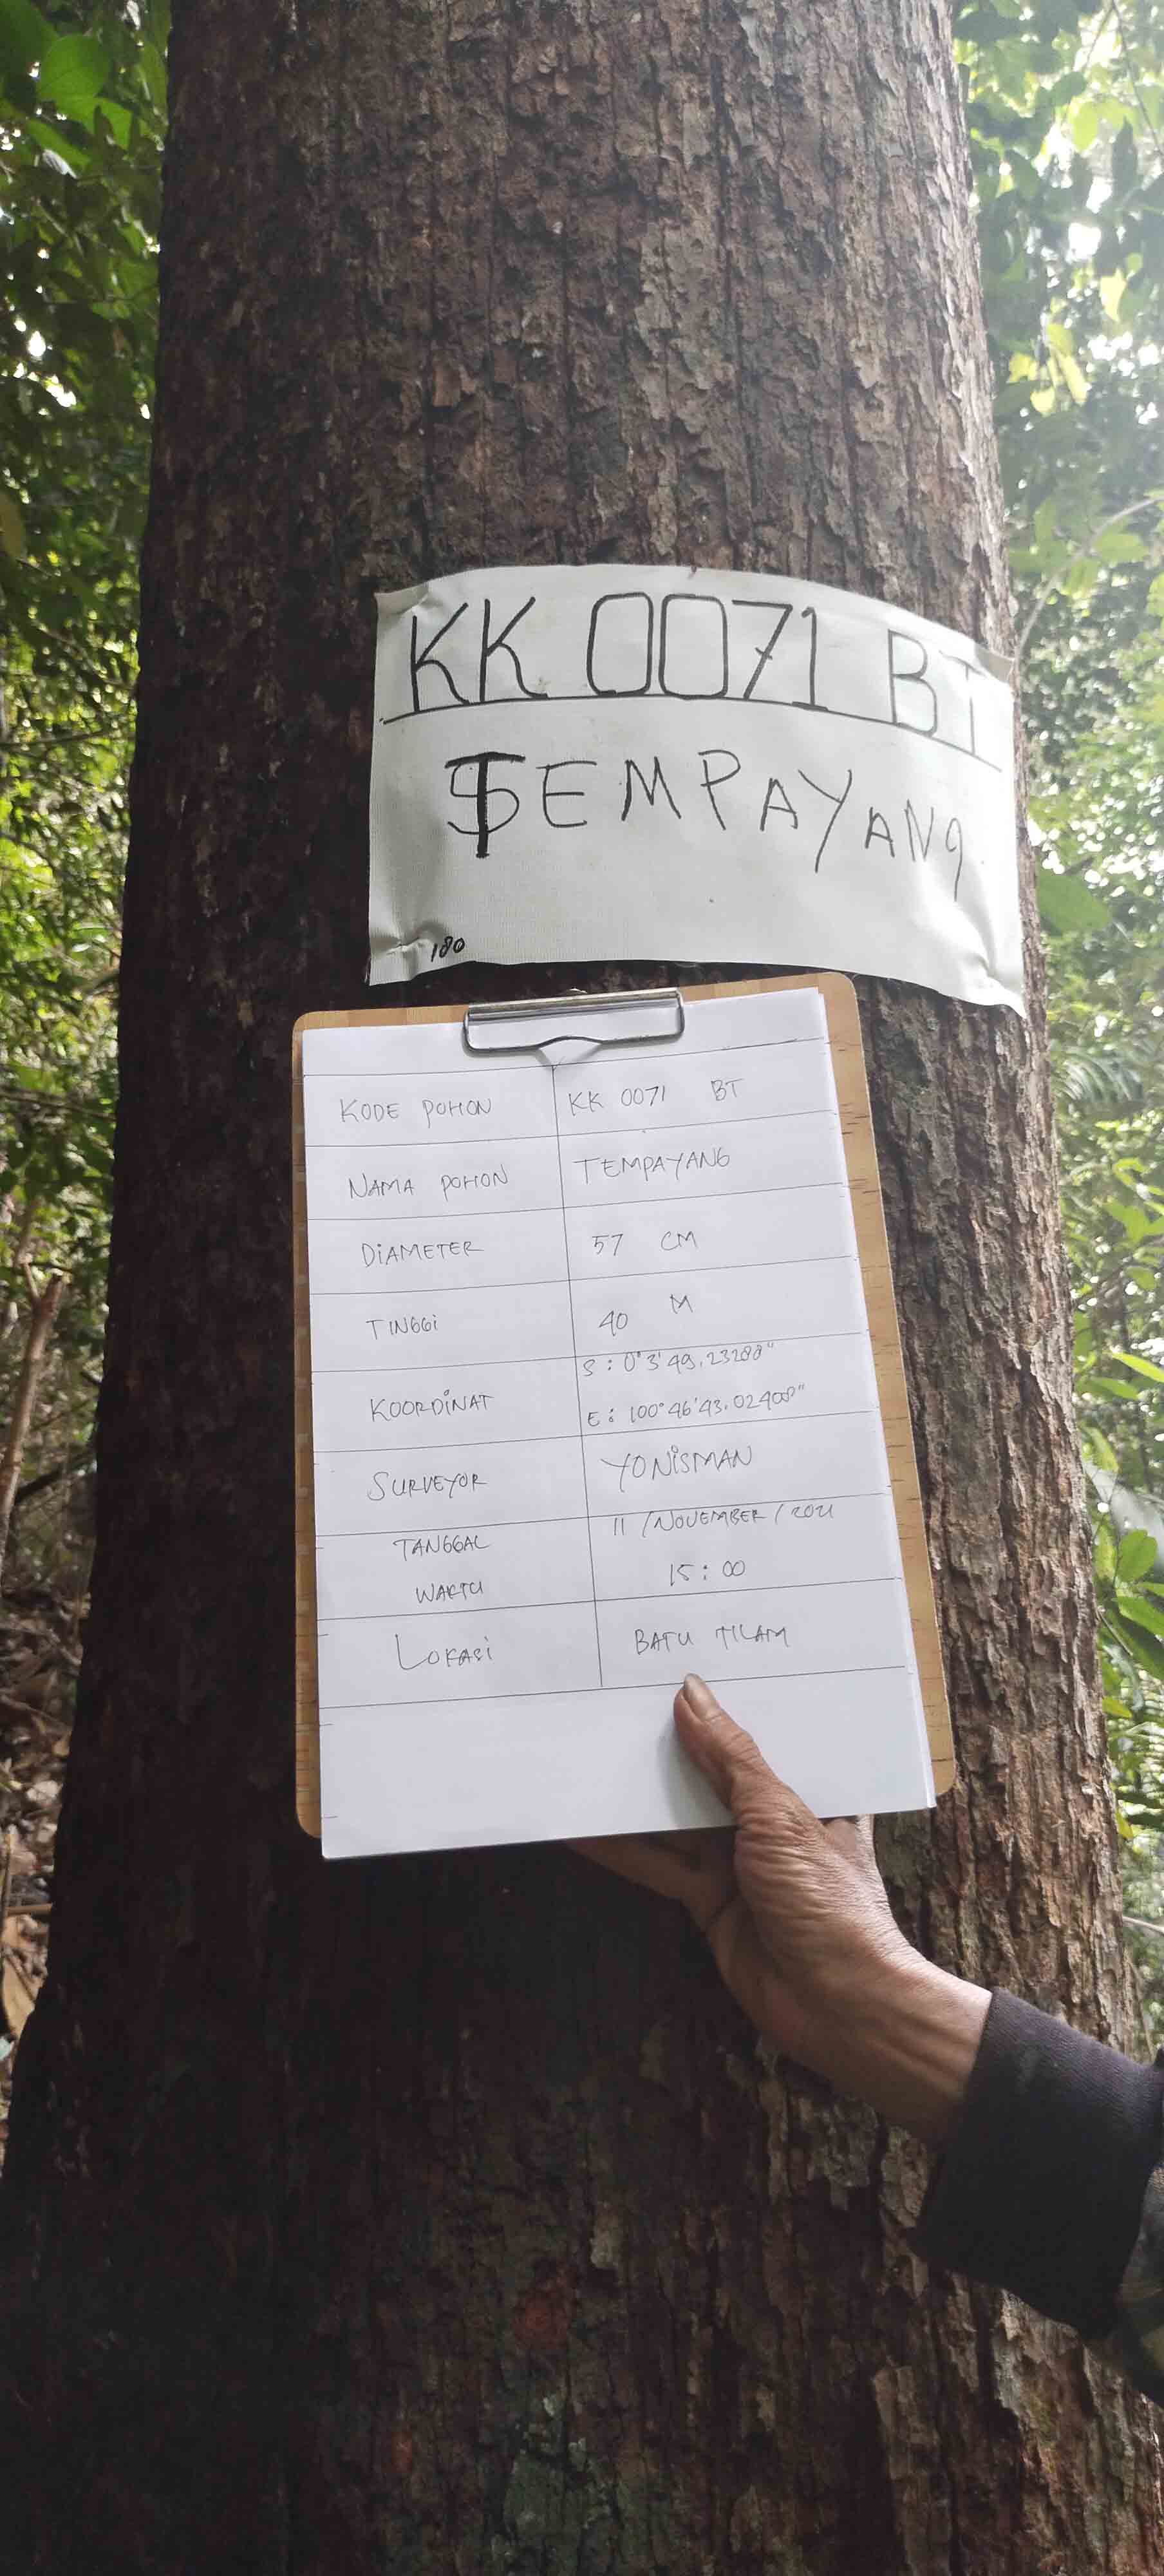 KK 0071 BT
TEMPAYANG
180
KODE POHON KK 0071 BT
NAMA POHON TEMPAYANG
DIAMETER 57 CM
TINGGI 40 M
KOORDINAT S : 0° 3' 49,23288"
E : 100° 46' 43,02400"
SURVEYOR YONISMAN
TANGGAL 11 / NOVEMBER / 2021
WAKTU 15 : 00
LOKASI BATU TILAM